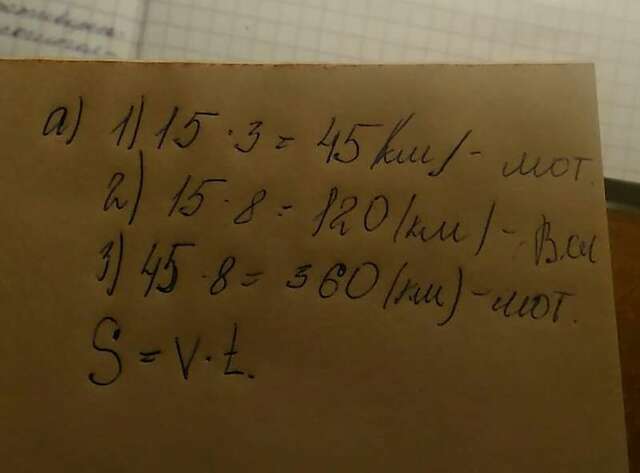 а) 1) 15 · 3 = 45 (км) - мот.
2) 15 · 8 = 120 (км) - В.сл
3) 45 · 8 = 360 (км) - мот.
S = v · t.